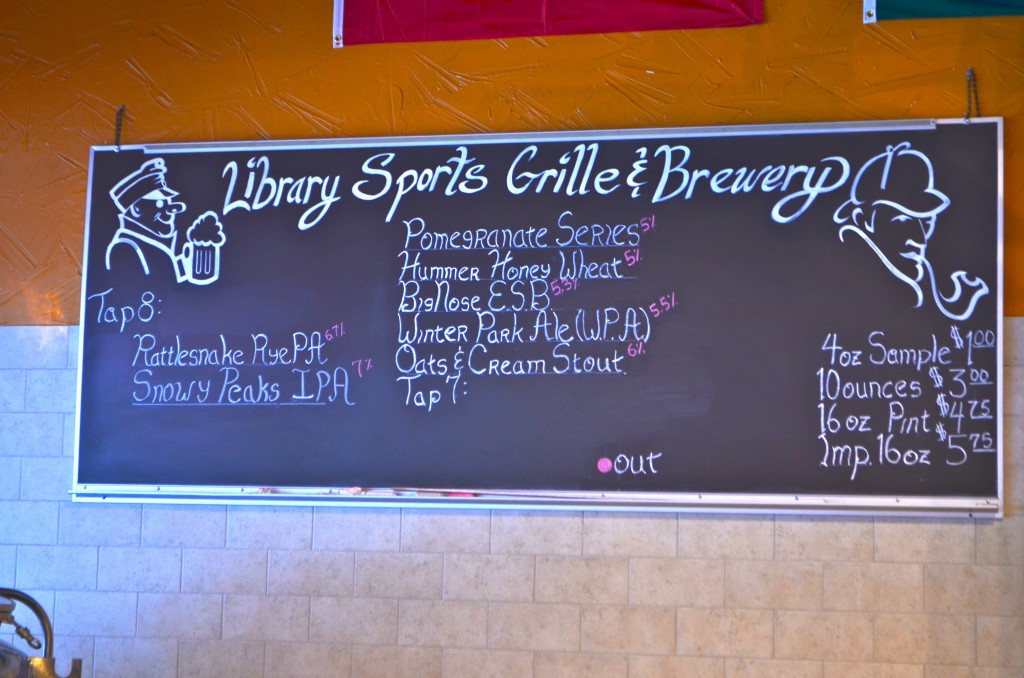 Library Sports Grille & Brewery
Tap 8:
Rattlesnake Rye PA 6.7%
Snowy Peaks IPA 7%
Pomegranate Series 5%
Hummer Honey Wheat 5%
Big Nose E.S.B. 5.3%
Winter Park Ale (W.P.A) 5.5%
Oats & Cream Stout 6%
Tap 7:
out
4oz Sample $1.00
10 ounces $3.00
16 oz Pint $4.75
Imp. 16oz $5.75